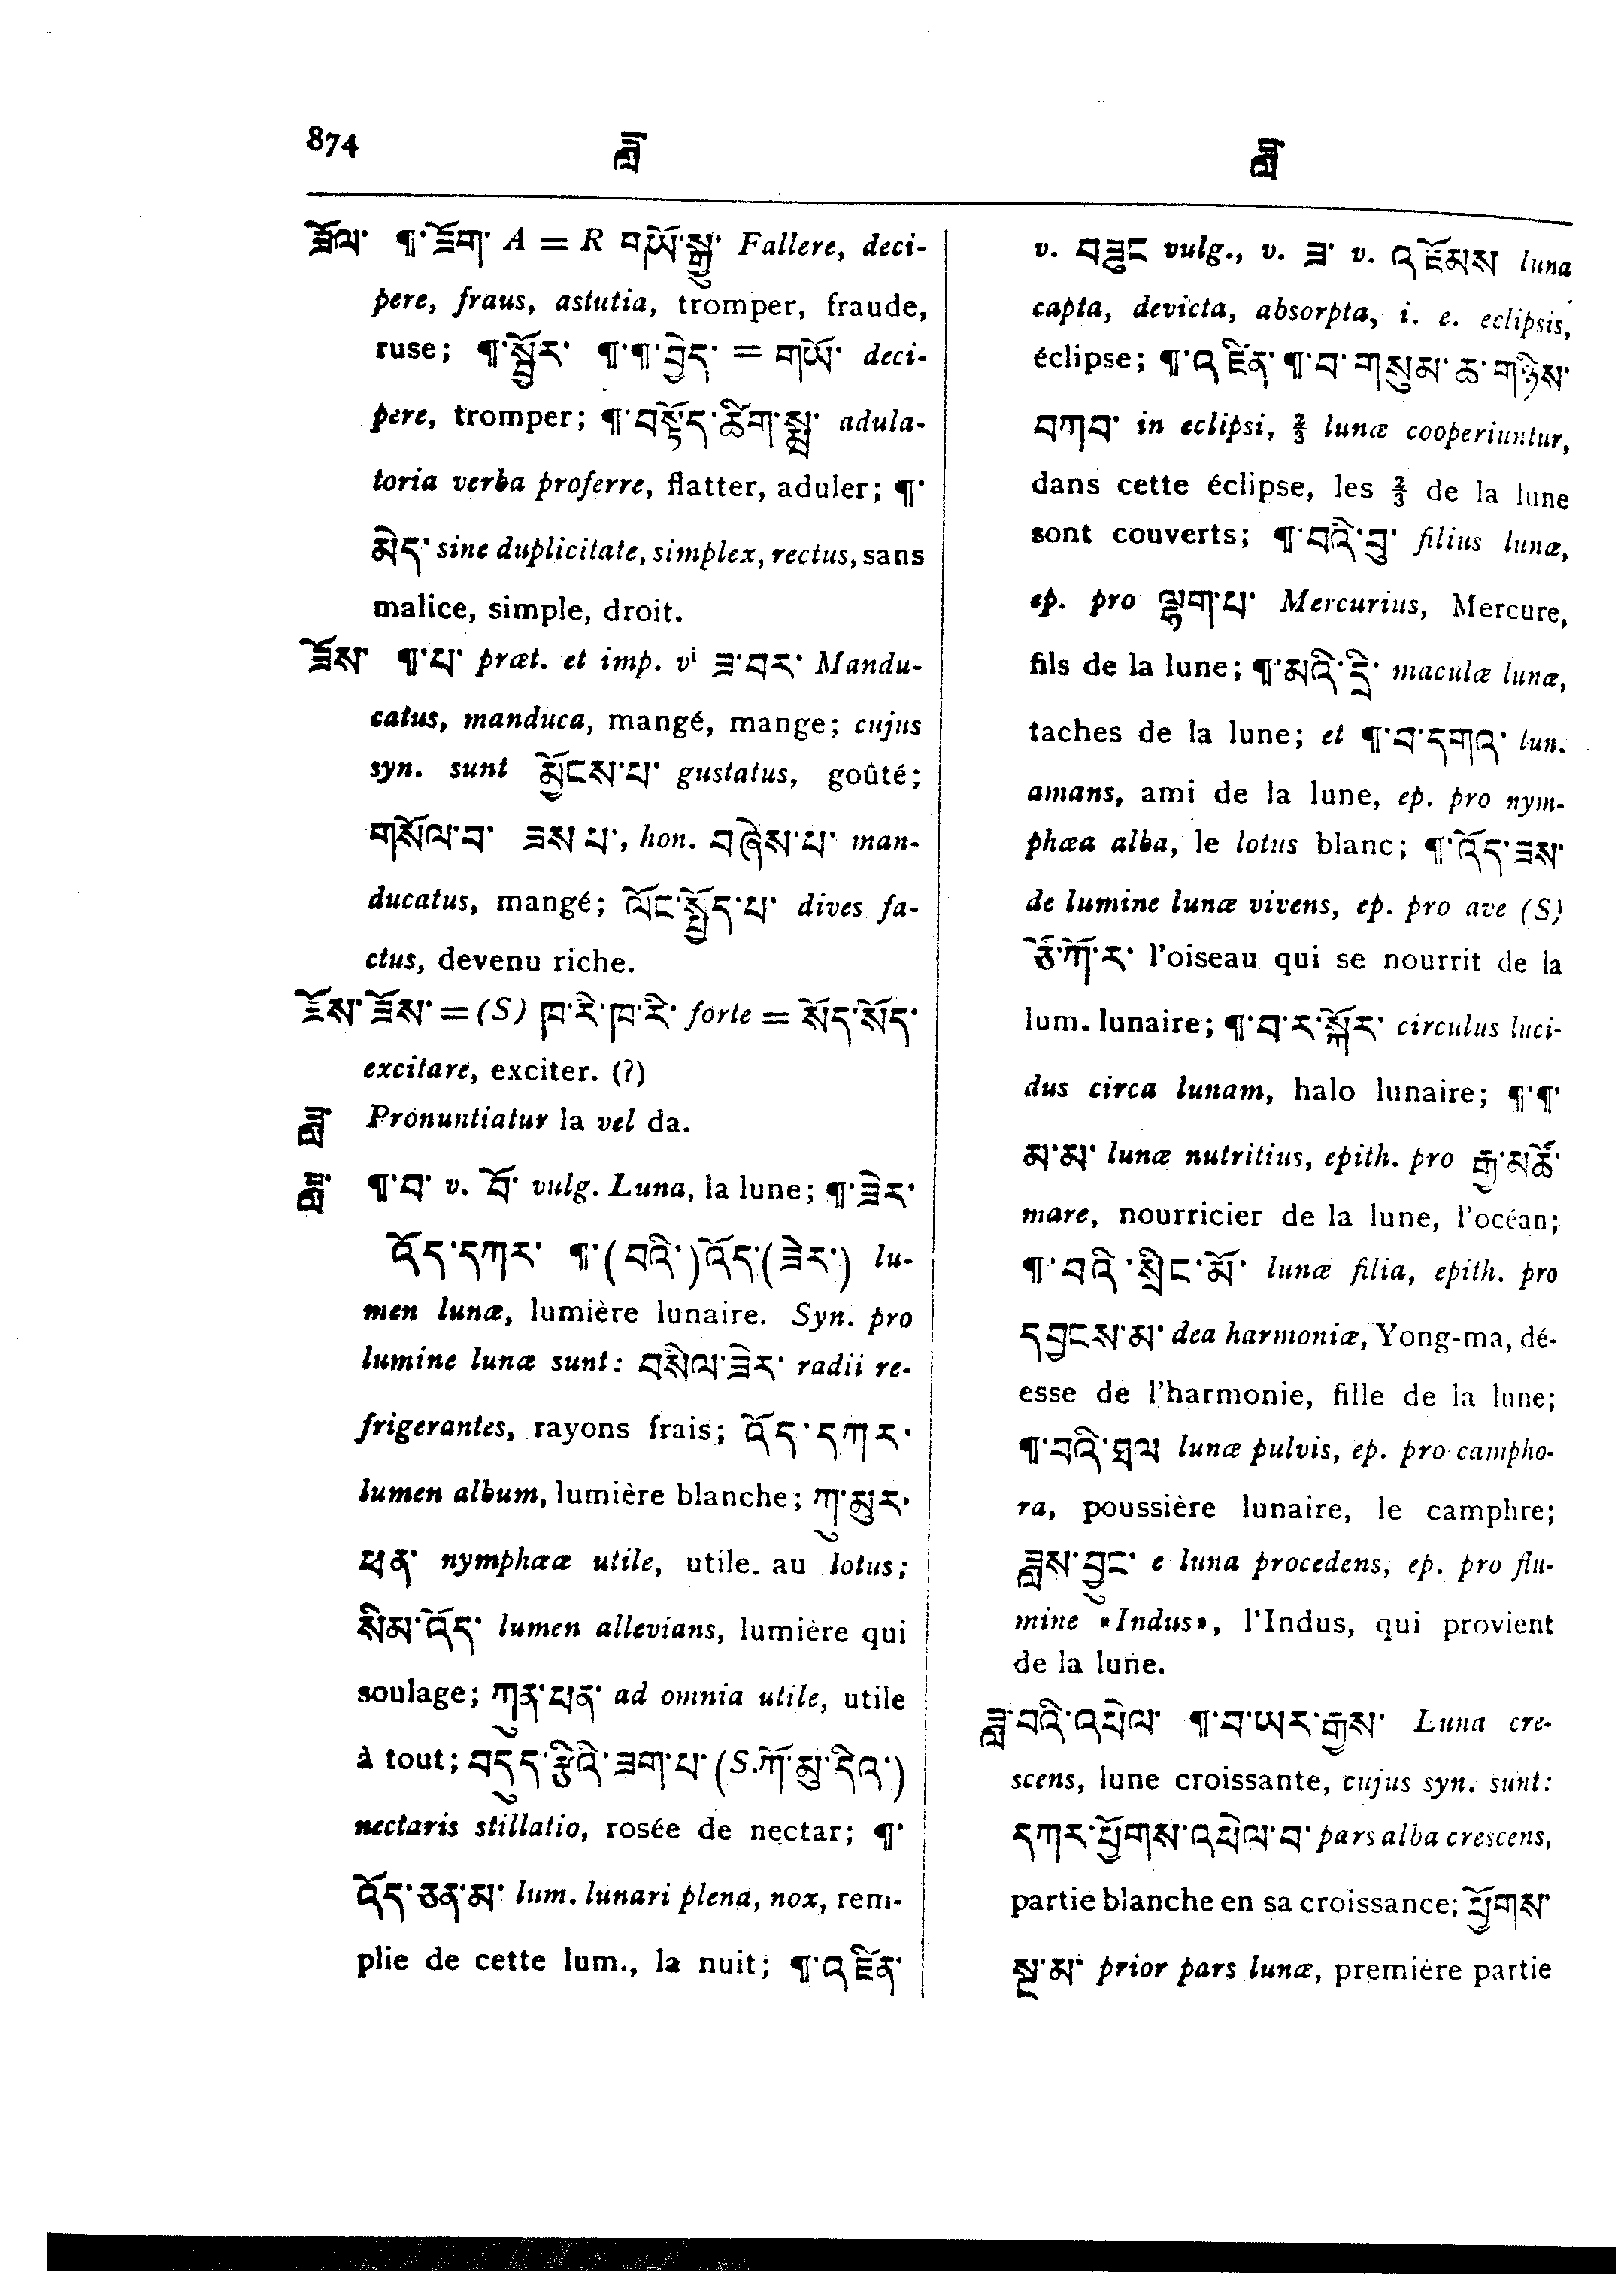 874
ཟླ
ཟླ
ཟོལ་ ¶་ཟོག་ A = R གཡོ་སྒྱུ་ Fallere, deci-
pere, fraus, astutia, tromper, fraude,
ruse; ¶་སྦྱོར་ ¶་¶་བྱེད་ = གཡོ་ deci-
pere, tromper; ¶་བསྟོད་ཚིག་སྨྲ་ adula-
toria verba proferre, flatter, aduler; ¶་
མེད་ sine duplicitate, simplex, rectus, sans
malice, simple, droit.
ཟོས་ ¶་པ་ præt. et imp. vⁱ ཟ་བར་ Mandu-
catus, manduca, mangé, mange; cujus
syn. sunt མྱོངས་པ་ gustatus, goûté;
གསོལ་བ་ ཟས་པ་, hon. བཞེས་པ་ man-
ducatus, mangé; ལོང་སྤྱོད་པ་ dives fa-
ctus, devenu riche.
ཟོས་ཟོས་ = (S) ཁ་རི་ཁ་རི་ forte = སོད་སོད་
excitare, exciter. (?)
ཟླ Pronuntiatur la vel da.
ཟླ་ ¶་བ་ v. བོ་ vulg. Luna, la lune; ¶་ཟེར་
འོད་དཀར་ ¶་(བའི་)འོད་(ཟེར་) lu-
men lunæ, lumière lunaire. Syn. pro
lumine lunæ sunt: བསིལ་ཟེར་ radii re-
frigerantes, rayons frais; འོད་དཀར་
lumen album, lumière blanche; ཀུ་མུར་
ཕན་ nymphææ utile, utile. au lotus;
སིམ་འོད་ lumen allevians, lumière qui
soulage; ཀུན་ཕན་ ad omnia utile, utile
à tout; བདུད་རྩིའི་ཟག་པ་ (S.ཀོ་མུ་དིའ་)
nectaris stillatio, rosée de nectar; ¶་
འོད་ཅན་མ་ lum. lunari plena, nox, rem-
plie de cette lum., la nuit; ¶་འཛིན་
v. བཟུང vulg., v. ཟ་ v. འཛོམས luna
capta, devicta, absorpta, i. e. eclipsis,
éclipse; ¶་འཛིན་¶་བ་གསུམ་ཆ་གཉིས་
བཀབ་ in eclipsi, ⅔ lunæ cooperiuntur,
dans cette éclipse, les ⅔ de la lune
sont couverts; ¶་བའི་བུ་ filius lunæ,
ep. pro ལྷག་པ་ Mercurius, Mercure,
fils de la lune; ¶་མའི་དྲི་ maculæ lunæ,
taches de la lune; et ¶་བ་དགའ་ lun.
amans, ami de la lune, ep. pro nym-
phæa alba, le lotus blanc; ¶་འོད་ཟས་
de lumine lunæ vivens, ep. pro ave (S)
ཙོ་ཀོ་ར་ l'oiseau qui se nourrit de la
lum. lunaire; ¶་བ་ར་སྐོར་ circulus luci-
dus circa lunam, halo lunaire; ¶་¶་
མ་མ་ lunæ nutritius, epith. pro རྒྱ་མཚོ་
mare, nourricier de la lune, l'océan;
¶་བའི་སྲིང་མོ་ lunæ filia, epith. pro
དབྱངས་མ་ dea harmoniæ, Yong-ma, dé-
esse de l'harmonie, fille de la lune;
¶་བའི་ཐལ lunæ pulvis, ep. pro campho-
ra, poussière lunaire, le camphre;
ཟླས་བྱུང་ e luna procedens, ep. pro flu-
mine «Indus», l'Indus, qui provient
de la lune.
ཟླ་བའི་འཕེལ་ ¶་བ་ཡར་རྒྱས་ Luna cre-
scens, lune croissante, cujus syn. sunt:
དཀར་ཕྱོགས་འཕེལ་བ་ pars alba crescens,
partie blanche en sa croissance; ཕྱོགས་
སྔ་མ་ prior pars lunæ, première partie